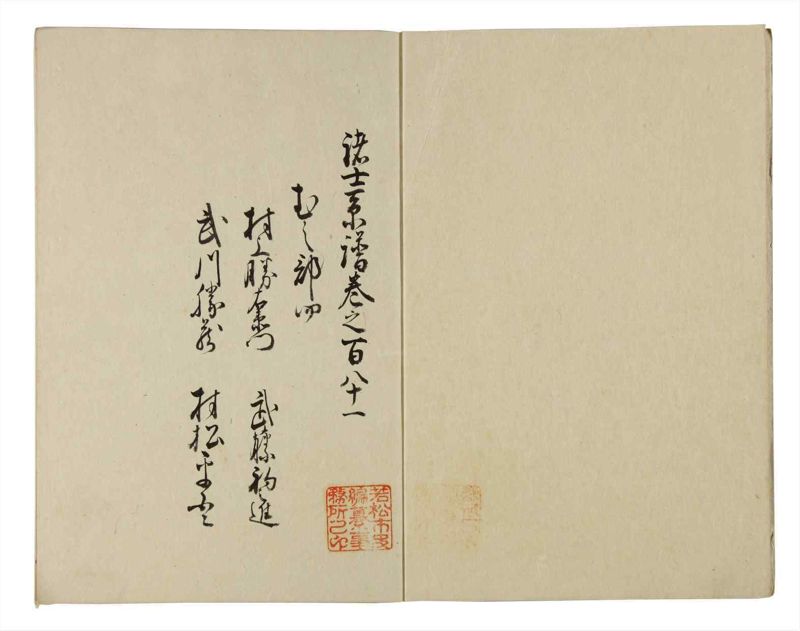 諸士系譜巻之百八十一
む之部 四
村上勝右衛門 武藤初進
武川勝蔵 村松平
若松市史
編纂事
務所之印